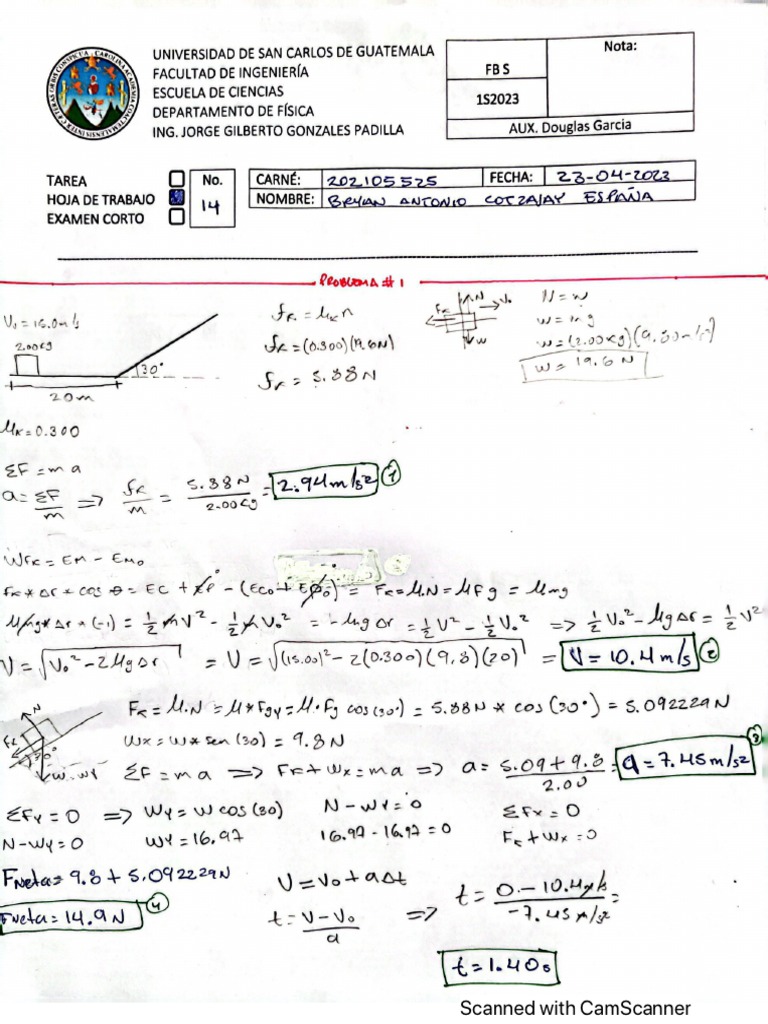 UNIVERSIDAD DE SAN CARLOS DE GUATEMALA
FACULTAD DE INGENIERÍA
ESCUELA DE CIENCIAS
DEPARTAMENTO DE FÍSICA
ING. JORGE GILBERTO GONZALES PADILLA
FB S
1S2023
Nota:
AUX. Douglas Garcia
TAREA
HOJA DE TRABAJO
EXAMEN CORTO
No.
14
CARNÉ: 202105525 FECHA: 23-04-2023
NOMBRE: BRYAN ANTONIO COTZAJAY ESPAÑA
PROBLEMA #1
V₀=15.0m/s
2.00kg
30°
20m
fk = μk n
fk = (0.300)(19.6N)
fk = 5.88N
Fk N V₀
W
N = w
w = mg
w = (2.00kg)(9.80m/s²)
w = 19.6 N
μk=0.300
ΣF = m a
a = ΣF/m => fk/m = 5.88N/2.00kg = 2.94m/s² 1
WFk = EM - EM₀
Fk * Δr * cos θ = EC + EP - (EC₀ + EP₀) = Fk = μ.N = μFg = μmg
μmg * Δr * (-1) = 1/2 mV² - 1/2 mV₀² = -μgΔr = 1/2 V² - 1/2 V₀² => 1/2 V₀² - μgΔr = 1/2 V²
V = √V₀² - 2μgΔr = V = √(15.00)² - 2(0.300)(9.8)(20) = V = 10.4m/s 2
N
Fk
30°
W Wy
Fk = μ.N = μ*Fgy = μ.Fg cos(30°) = 5.88N * cos(30°) = 5.092229N
Wx = W * sen(30) = 9.8N
ΣF = ma => Fk + Wx = ma => a = 5.09 + 9.8/2.00 = a = 7.45m/s² 3
ΣFy = 0 => Wy = W cos(30) N - Wy = 0 ΣFx = 0
N - Wy = 0 Wy = 16.97 16.97 - 16.97 = 0 Fk + Wx = 0
FNeta = 9.8 + 5.092229N
FNeta = 14.9N 4
V = V₀ + aΔt
t = V - V₀/a => t = 0 - 10.4m/s/-7.45m/s² =
t = 1.40s
Scanned with CamScanner